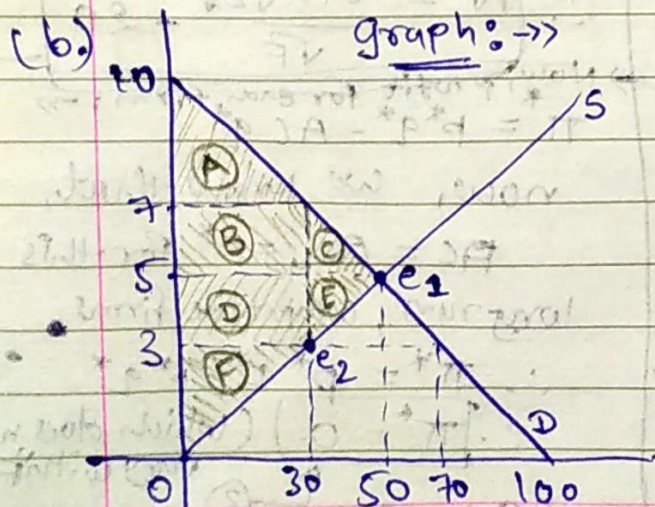 (b.) graph: →>
10
S
A
7
B C
5 e1
D E
3 e2
F
D
0 30 50 70 100